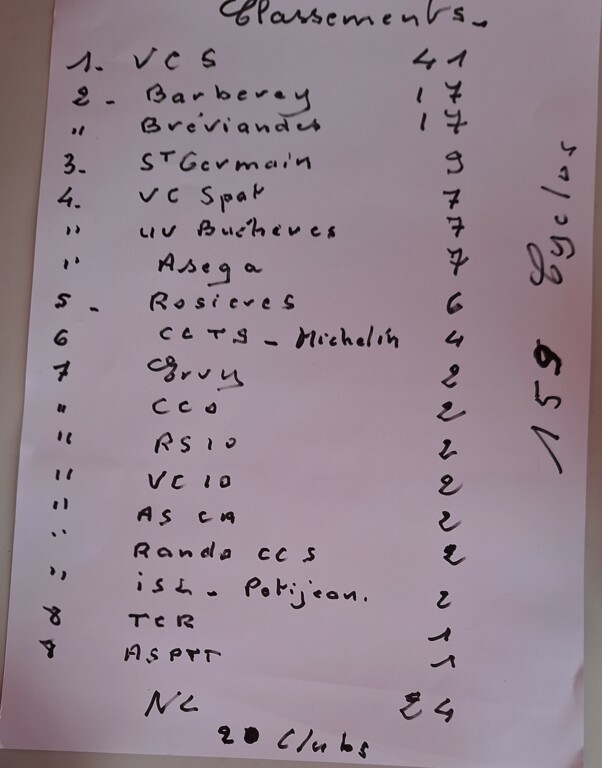 Classements.
1. VCS 41
2. Barberey 17
" Bréviandes 17
3. St Germain 9
4. VC Spat 7
" UV Buchères 7
" Asega 7
5. Rosieres 6
6 CCTS - Michelin 4
7 Ervy 2
" CCO 2
" RS10 2
" VC10 2
" ASCA 2
" Rando CCS 2
" ISL - Petitjean. 2
8 TCR 1
8 ASPTT 1
NL 24
20 Clubs
159 Cyclos